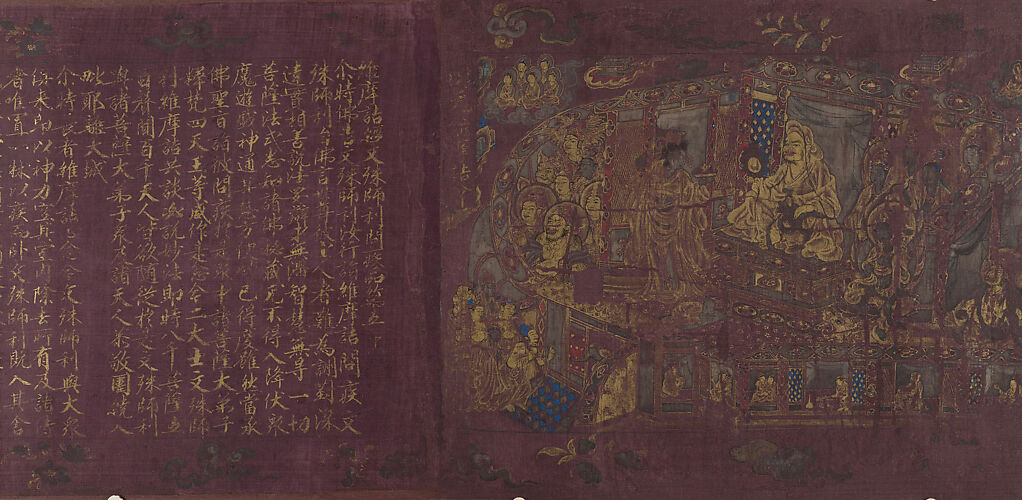 維摩詰經文殊師利問疾品第五
尒時佛告文殊師利汝行詣維摩詰問疾文
殊師利白佛言世尊彼上人者難為詶對深
達實相善說法要辯才無滯智慧無㝵一切
菩薩法式悉知諸佛祕藏無不得入降伏眾
魔遊戲神通其慧方便皆已得度雖然當承
佛聖旨詣彼問疾於是眾中諸菩薩大弟子
釋梵四天王等咸作是念今二大士文殊師
利維摩詰共談必說妙法即時八千菩薩五
百聲聞百千天人皆欲隨從於是文殊師利
與諸菩薩大弟子眾及諸天人恭敬圍繞入
毗耶離大城
尒時長者維摩詰心念今文殊師利與大眾
俱來即以神力空其室內除去所有及諸侍
者唯置一牀以疾而臥文殊師利既入其舍